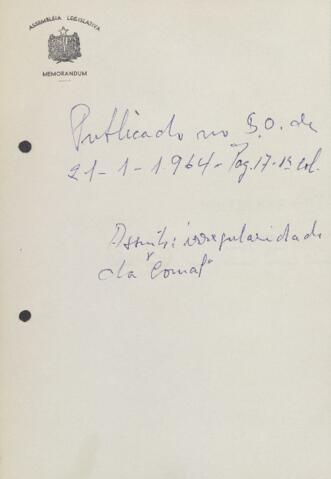 ASSEMBLEIA LEGISLATIVA
MEMORANDUM
Publicado no D.O. de
21-1-1.964. Pag. 17-1ª col.
Assunto: irregularidade
da "Comal"